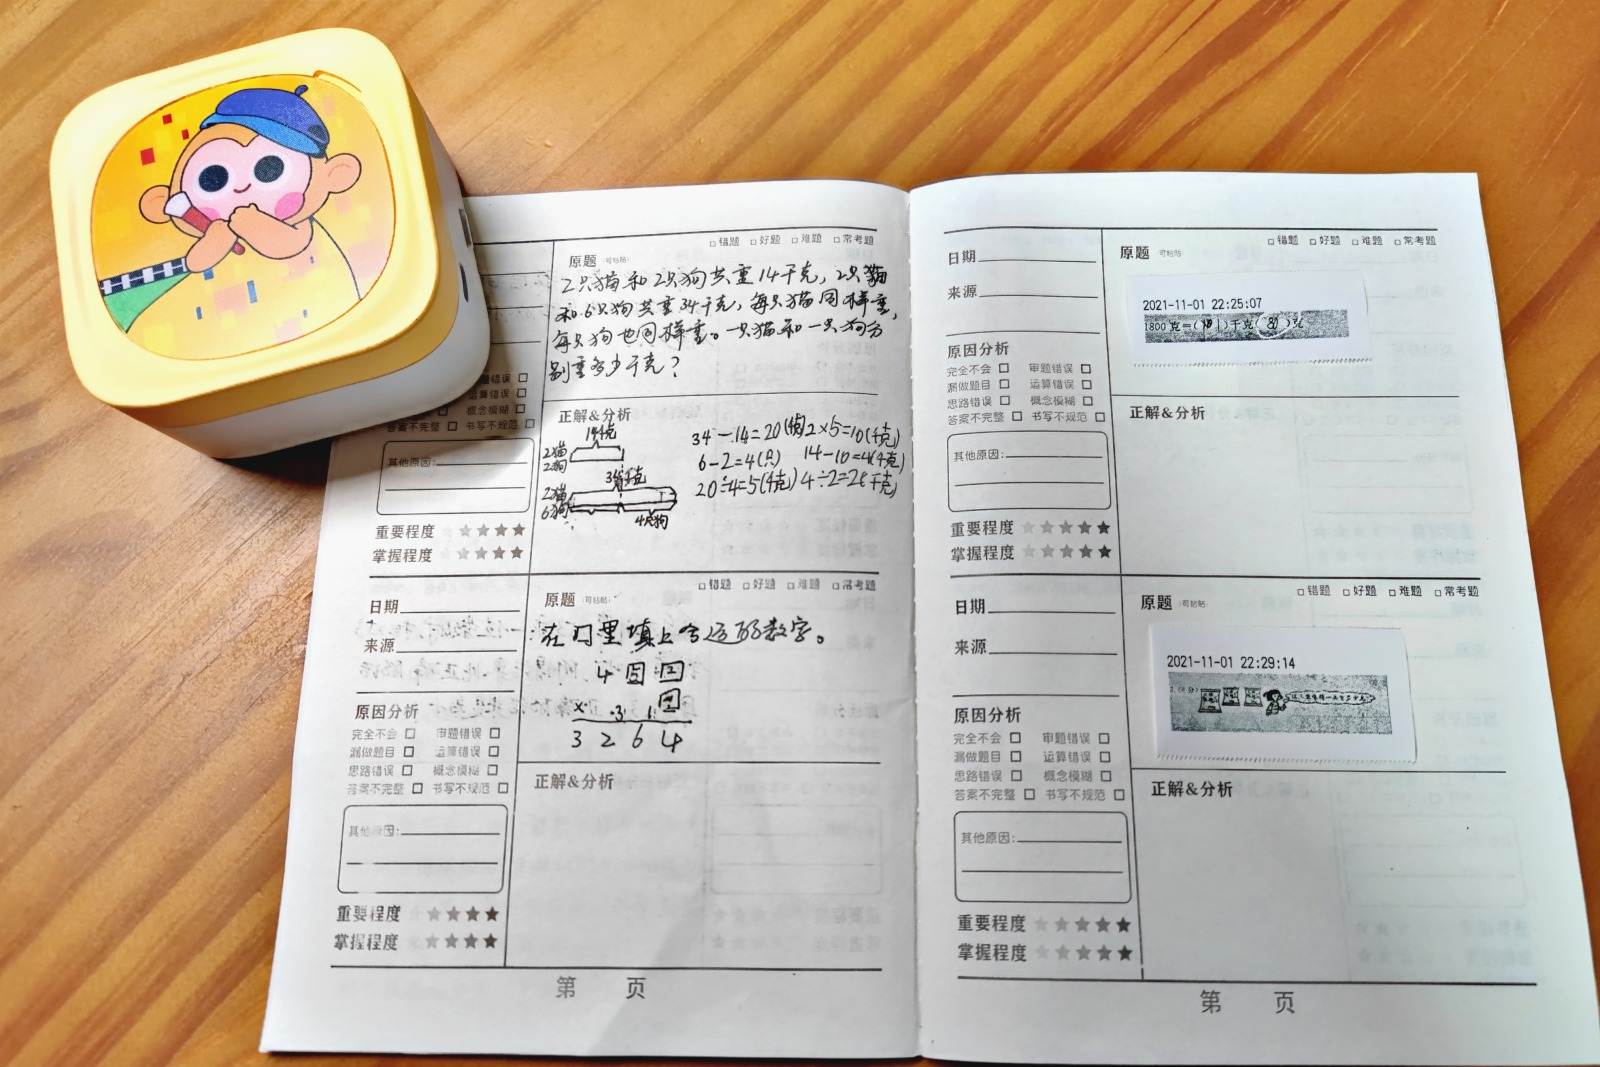 □错题 □好题 □难题 □常考题
原题 (可粘贴)
2只猫和2只狗共重14千克，2只猫
和6只狗共重34千克，每只猫同样重，
每只狗也同样重。一只猫和一只狗分
别重多少千克？
题错误 □
运算错误 □
概念模糊 □
答案不完整 □ 书写不规范 □
其他原因:
重要程度 ★★★★★
掌握程度 ★★★★★
正解&分析
14千克
2猫
2狗
34千克
2猫
6狗
4只狗
34-14=20(千克) 2×5=10(千克)
6-2=4(只) 14-10=4(千克)
20÷4=5(千克) 4÷2=2(千克)
日期
来源
原因分析
完全不会 □ 审题错误 □
漏做题目 □ 运算错误 □
思路错误 □ 概念模糊 □
答案不完整 □ 书写不规范 □
其他原因:
重要程度 ★★★★★
掌握程度 ★★★★★
□错题 □好题 □难题 □常考题
原题 (可粘贴)
在□里填上合适的数字。
4
×
3 2 6 4
正解&分析
第 页
日期
来源
原因分析
完全不会 □ 审题错误 □
漏做题目 □ 运算错误 □
思路错误 □ 概念模糊 □
答案不完整 □ 书写不规范 □
其他原因:
重要程度 ★★★★★
掌握程度 ★★★★★
□错题 □好题 □难题 □常考题
原题 可粘贴
2021-11-01 22:25:07
1800克=( )千克( 80 )克
正解&分析
日期
来源
原因分析
完全不会 □ 审题错误 □
漏做题目 □ 运算错误 □
思路错误 □ 概念模糊 □
答案不完整 □ 书写不规范 □
其他原因:
重要程度 ★★★★★
掌握程度 ★★★★★
□错题 □好题 □难题 □常考题
原题 可粘贴
2021-11-01 22:29:14
正解&分析
第 页